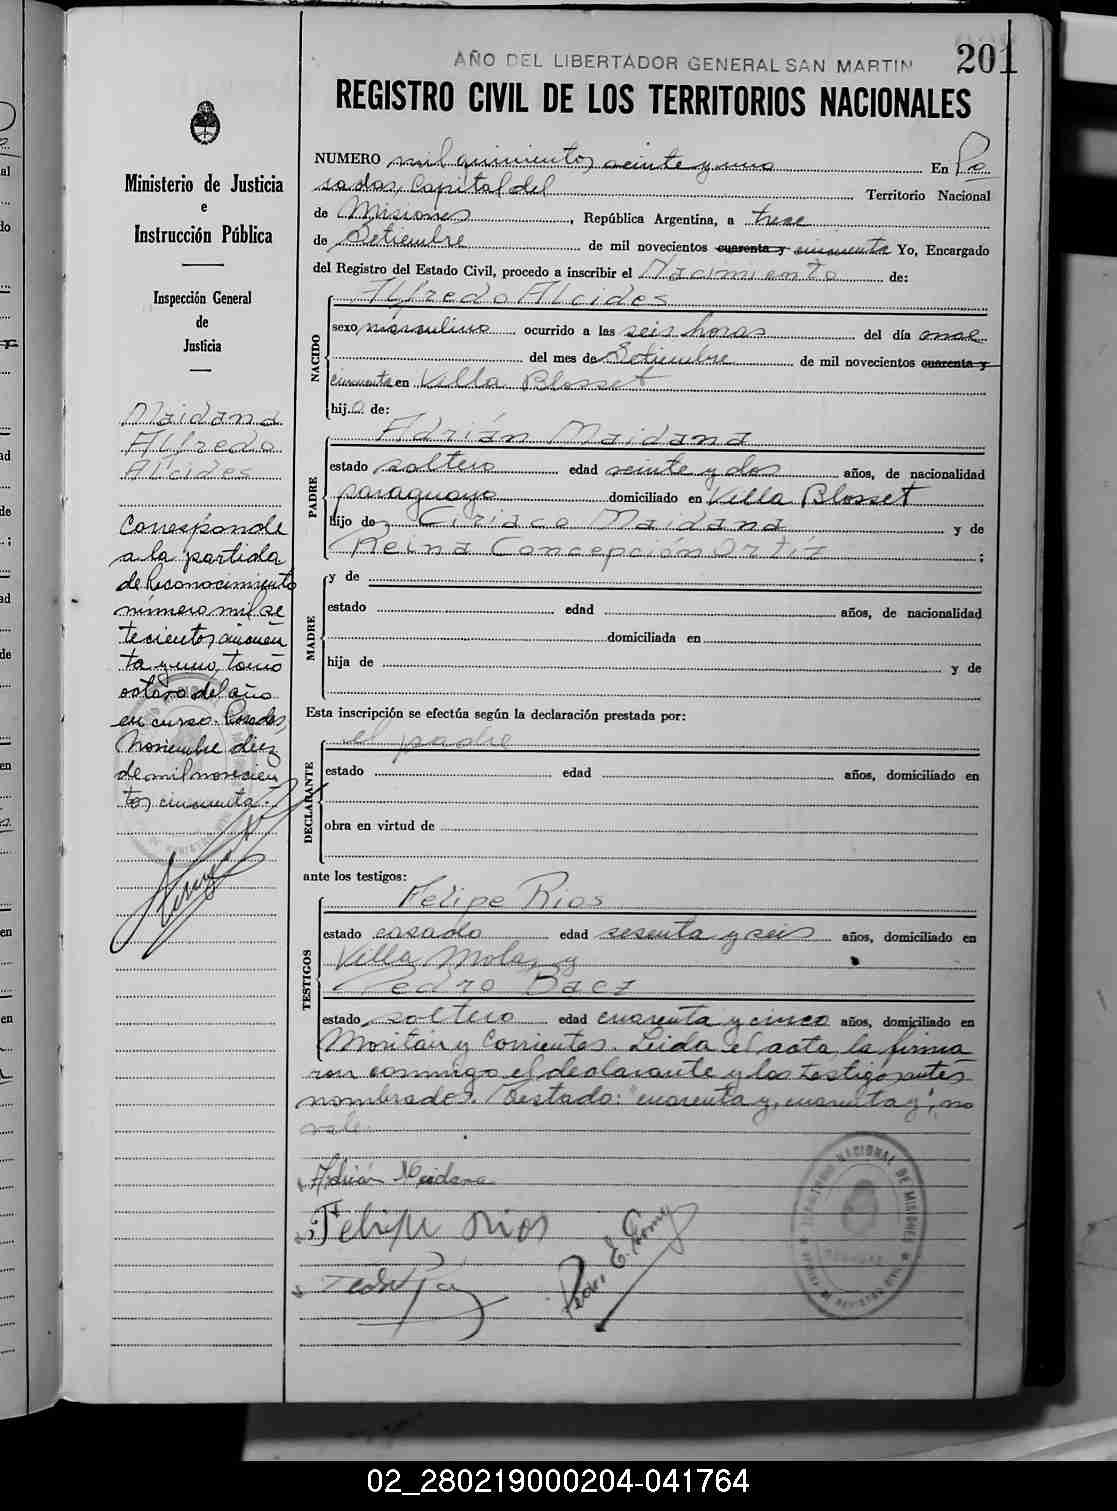 201
AÑO DEL LIBERTADOR GENERAL SAN MARTIN
REGISTRO CIVIL DE LOS TERRITORIOS NACIONALES
Ministerio de Justicia
e
Instrucción Pública
Inspección General
de
Justicia
Maidana
Alfredo
Alcides
Corresponde
a la partida
de Reconocimiento
número mil se
tecientos cincuen
ta y uno, tomo
octavo del año
en curso. Posadas,
Noviembre diez
de mil novecien
tos cincuenta.-
NUMERO mil quinientos veinte y uno En Po
sadas, Capital del Territorio Nacional
de Misiones, República Argentina, a trece
de Setiembre de mil novecientos cuarenta y cincuenta Yo, Encargado
del Registro del Estado Civil, procedo a inscribir el Nacimiento de:
NACIDO
Alfredo Alcides
sexo masculino ocurrido a las seis horas del día once
del mes de Setiembre de mil novecientos cuarenta y
cincuenta en Villa Blosset
hijo de:
PADRE
Adrián Maidana
estado soltero edad veinte y dos años, de nacionalidad
paraguayo domiciliado en Villa Blosset
Hijo de Ciriaco Maidana y de
Reina Concepción Ortíz ;
MADRE
y de
estado edad años, de nacionalidad
domiciliada en
hija de y de
Esta inscripción se efectúa según la declaración prestada por:
DECLARANTE
el padre
estado edad años, domiciliado en
obra en virtud de
ante los testigos:
TESTIGOS
Felipe Rios
estado casado edad sesenta y seis años, domiciliado en
Villa Mola, y
Pedro Baez
estado soltero edad cuarenta y cinco años, domiciliado en
Moritán y Corrientes. Leida el acta, la firma
ron conmigo el declarante y los testigos antes
nombrados. Testado: "cuarenta y, cuarenta y", no
vale.
Adrián Maidana
Felipe Rios
TERRITORIO NACIONAL DE MISIONES
02_280219000204-041764